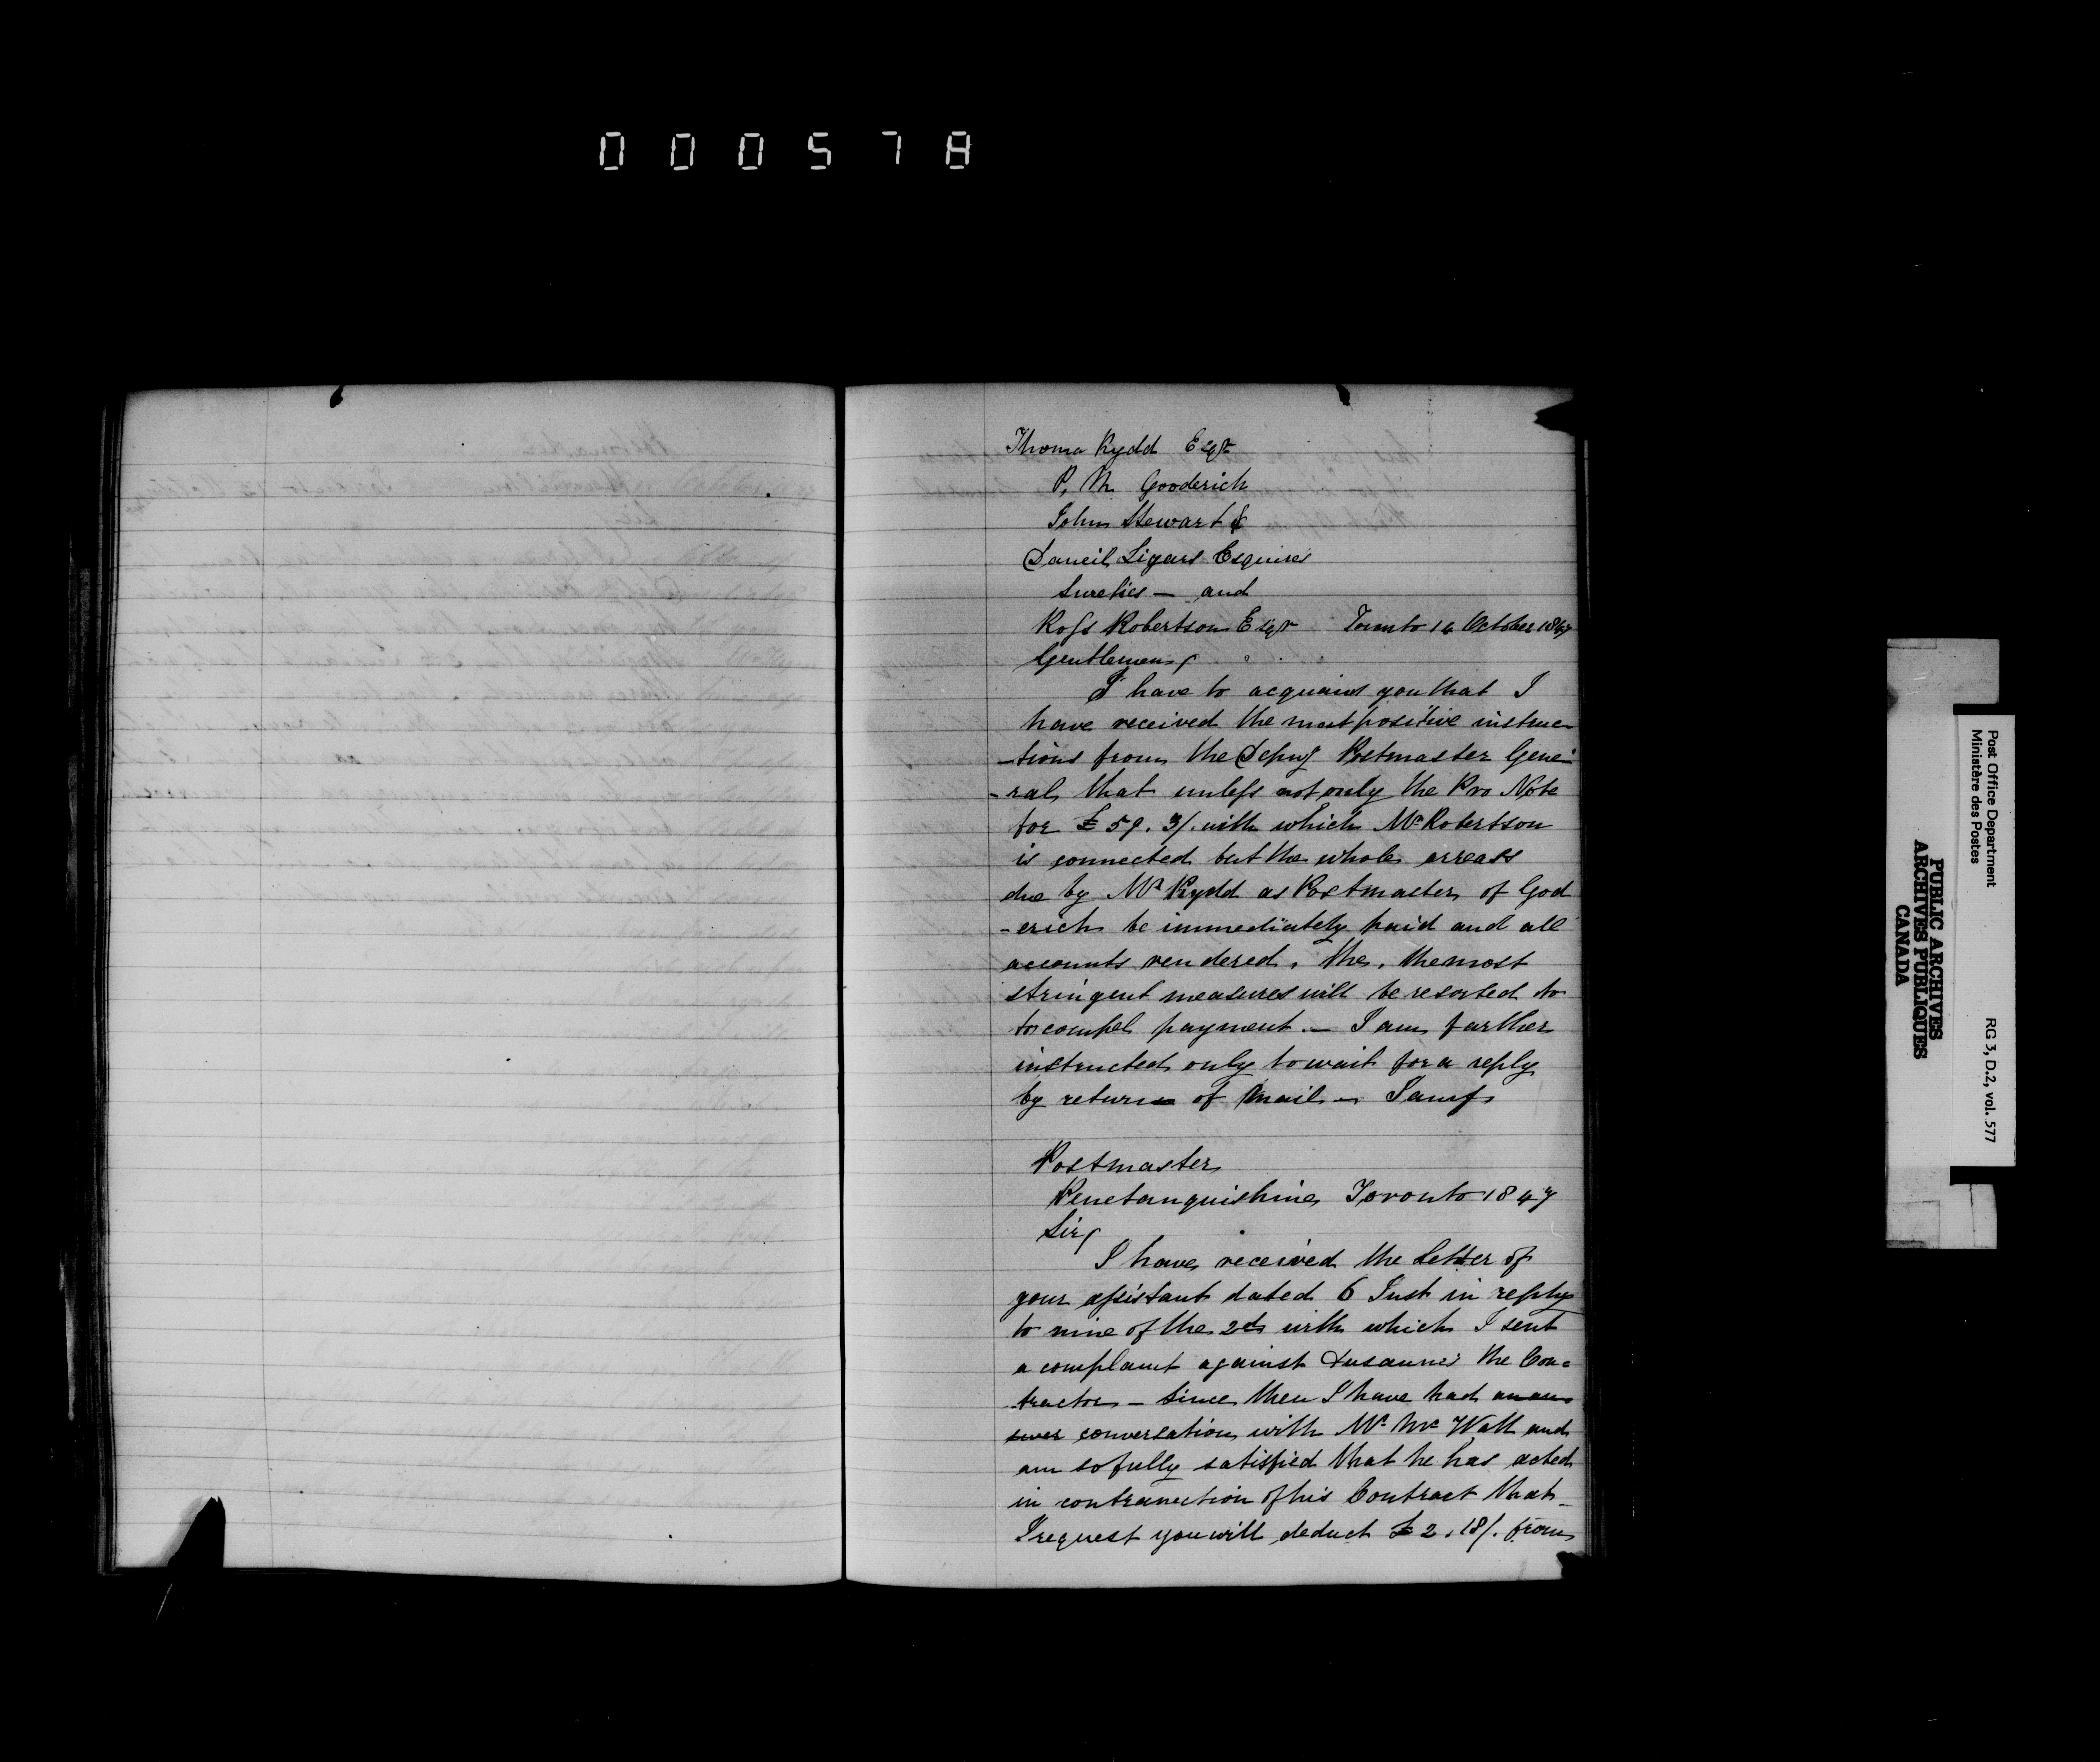 000578
Thoma Kydd Esqr
P. M. Gooderich
John Stewart &
Daneil Ligars Esquires
Sureties — and
Ross Robertson Esqr Toronto 14 October 1847
Gentlemen,
I have to acquaint you that I
have received the most positive instruc-
-tions from the Depuy Postmaster Gene-
-ral, that unless not only the Pro Note
for £ 59. 3/. with which Mr Robertson
is connected but the whole arrears
due by Mr Kydd as Postmaster of God
-erich be immediately paid and all
accounts rendered, the, the most
stringent measures will be resorted to
to compel payment. — I am further
instructed only to wait for a reply
by return of Mail — I am,
Postmaster
Penetanguishine Toronto 1847
Sir,
I have received the Letter of
your assistant dated 6 Inst in reply
to mine of the 2d with which I sent
a complaint against Dusaunes the Con-
tractor — Since then I have had an an
swer conversation with Mr Mc Watt and
am so fully satisfied that he has acted
in contravention of his Contract that
I request you will deduct £ 2. 18/. from
Post Office Department
Ministère des Postes
RG 3, D.2, vol. 577
PUBLIC ARCHIVES
ARCHIVES PUBLIQUES
CANADA